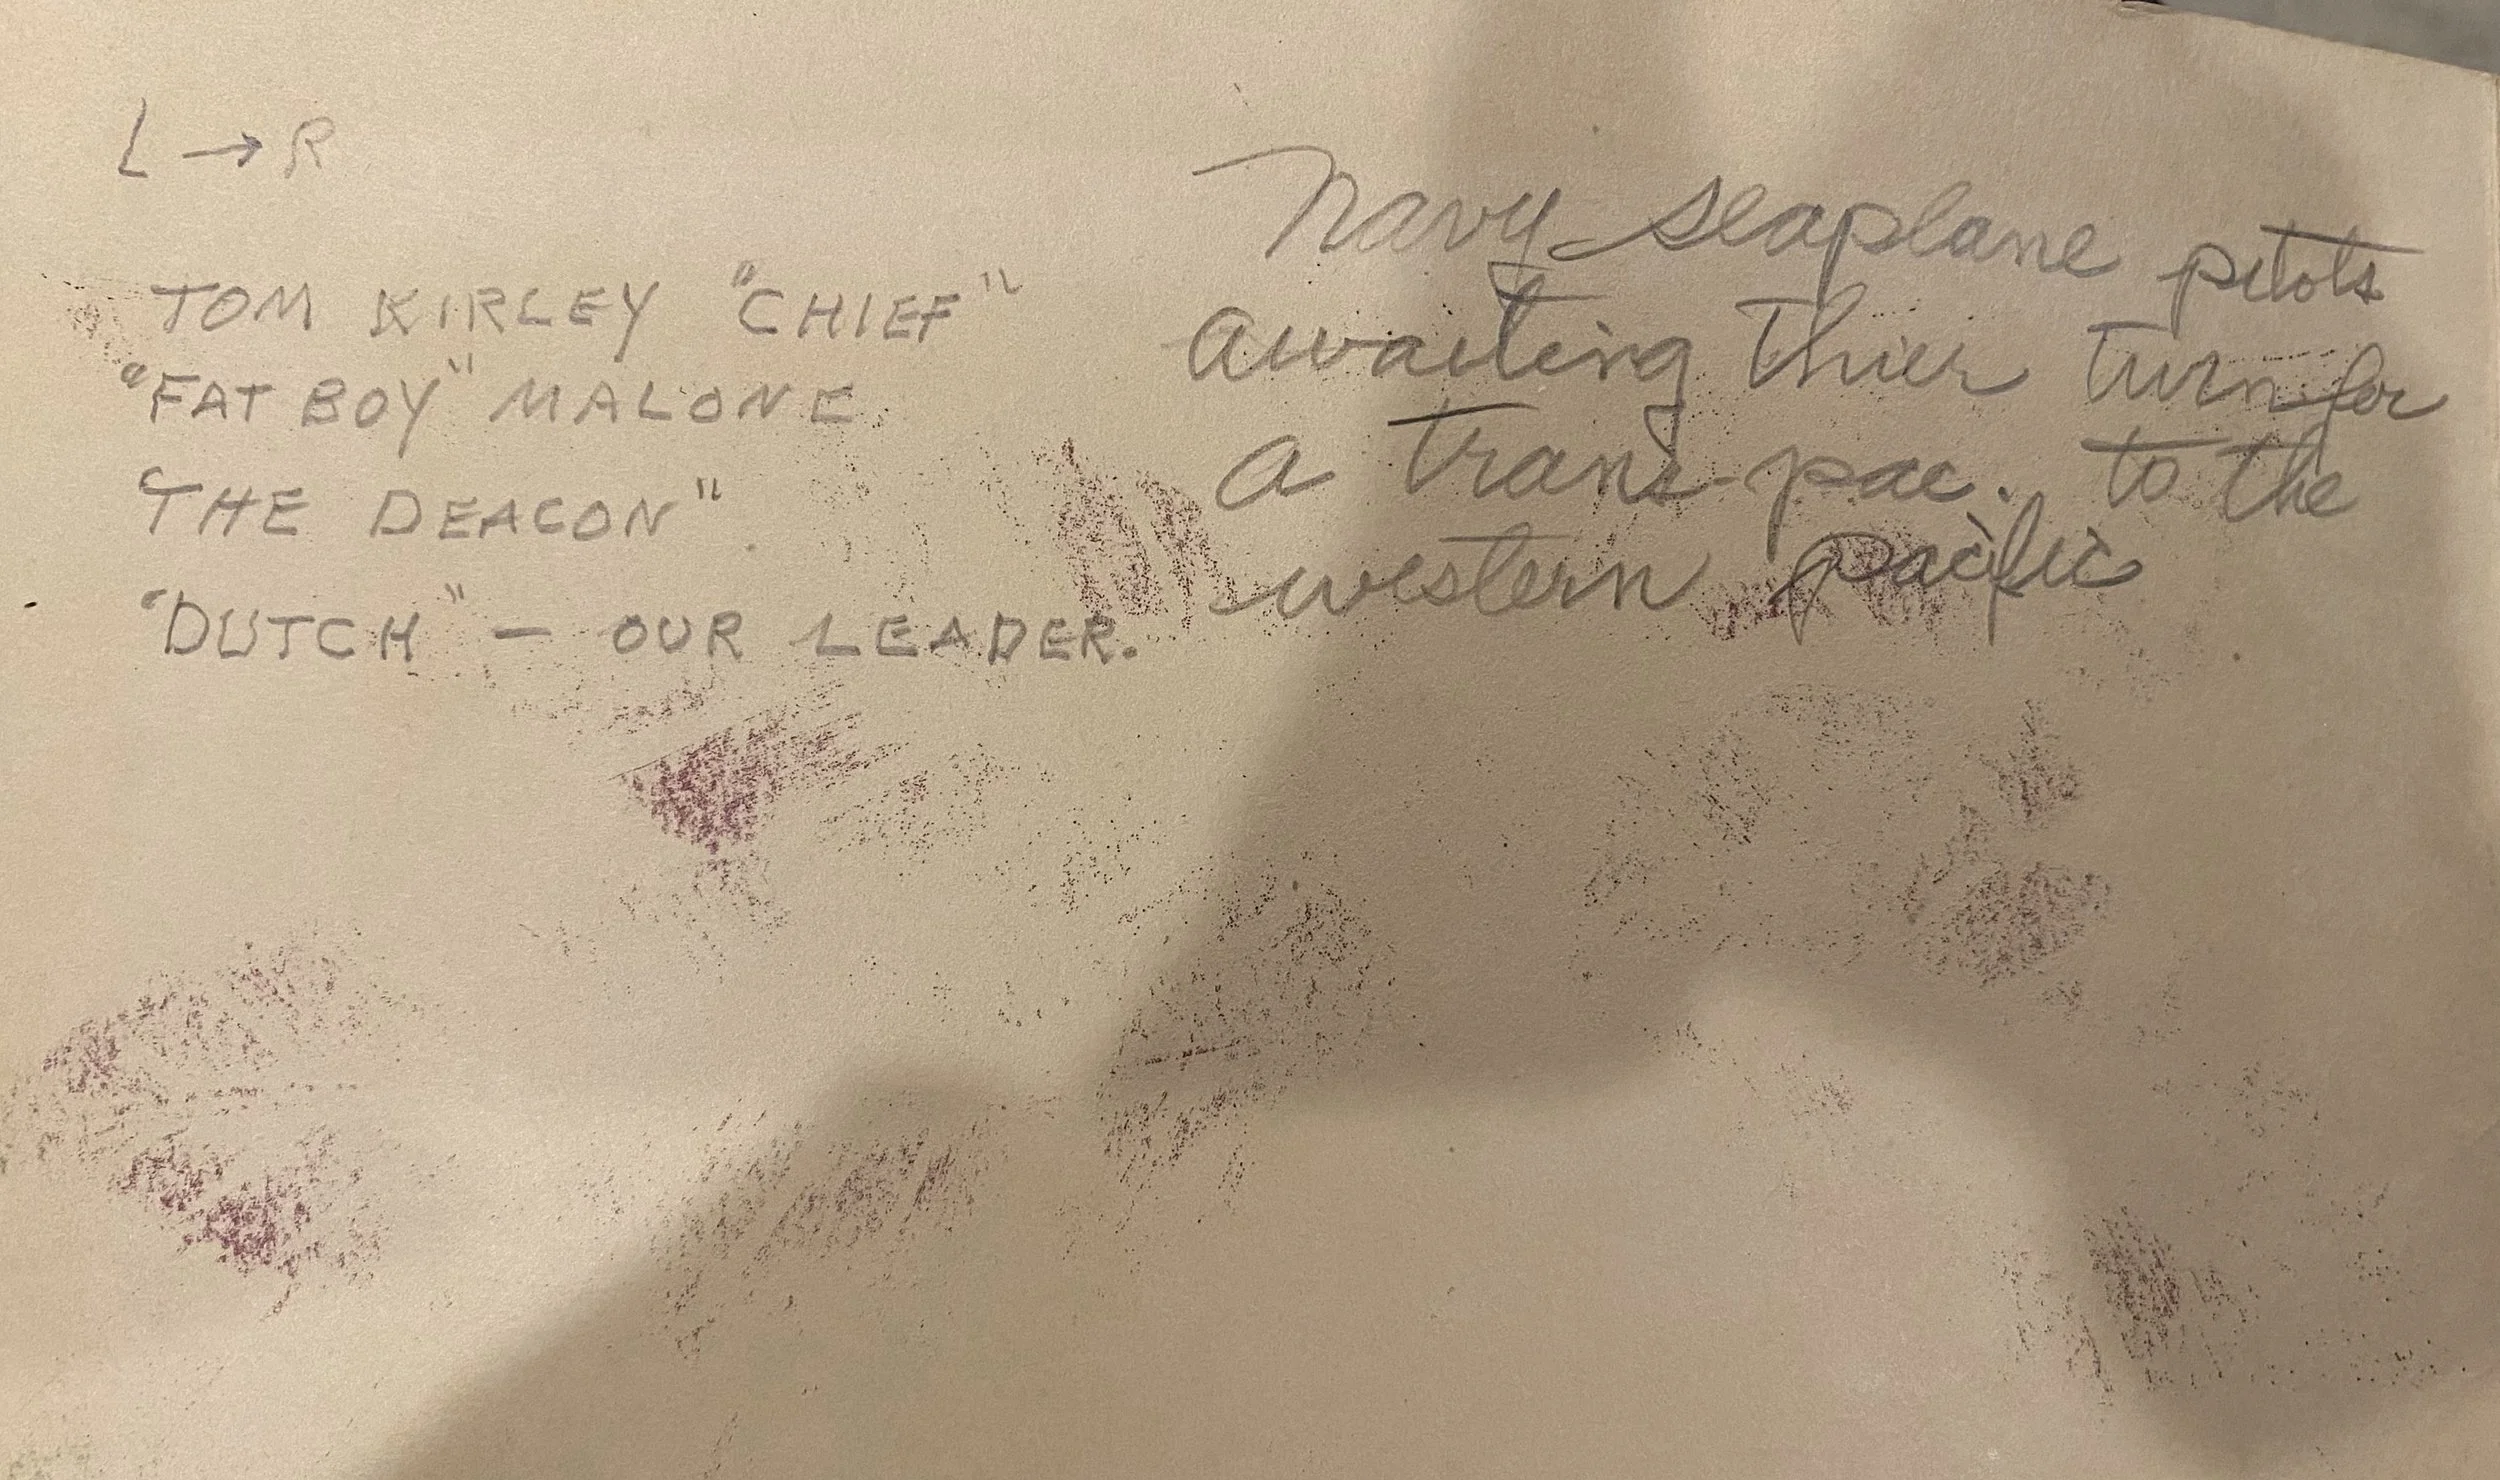 L → R
TOM KIRLEY "CHIEF"
"FAT BOY" MALONE
"THE DEACON"
"DUTCH" — OUR LEADER.
Navy seaplane pilots
awaiting thier turn for
a trans-pac. to the
western pacific